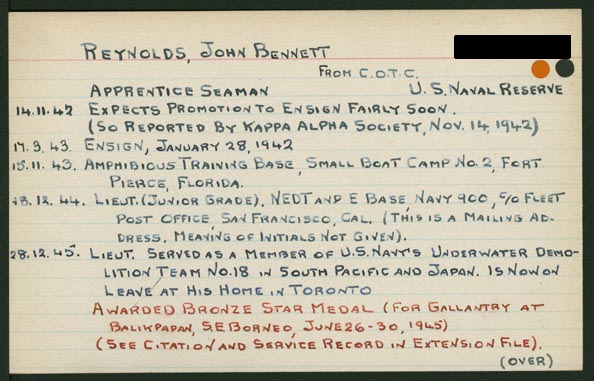 REYNOLDS, JOHN BENNETT
FROM C.O.T.C.
APPRENTICE SEAMAN U.S. NAVAL RESERVE
14.11.42 EXPECTS PROMOTION TO ENSIGN FAIRLY SOON.
(SO REPORTED BY KAPPA ALPHA SOCIETY, NOV. 14, 1942)
17.3.43. ENSIGN, JANUARY 28, 1942
15.11.43. AMPHIBIOUS TRAINING BASE, SMALL BOAT CAMP NO. 2, FORT
PIERCE, FLORIDA.
18.12.44. LIEUT. (JUNIOR GRADE), NEDT AND E BASE, NAVY 900, C/O FLEET
POST OFFICE, SAN FRANCISCO, CAL. (THIS IS A MAILING AD-
DRESS. MEANING OF INITIALS NOT GIVEN).
28.12.45. LIEUT. SERVED AS A MEMBER OF U.S. NAVY'S UNDERWATER DEMO-
LITION TEAM NO. 18 IN SOUTH PACIFIC AND JAPAN. IS NOW ON
LEAVE AT HIS HOME IN TORONTO
AWARDED BRONZE STAR MEDAL (FOR GALLANTRY AT
BALIKPAPAN, S.E. BORNEO, JUNE 26-30, 1945)
(SEE CITATION AND SERVICE RECORD IN EXTENSION FILE).
(OVER)